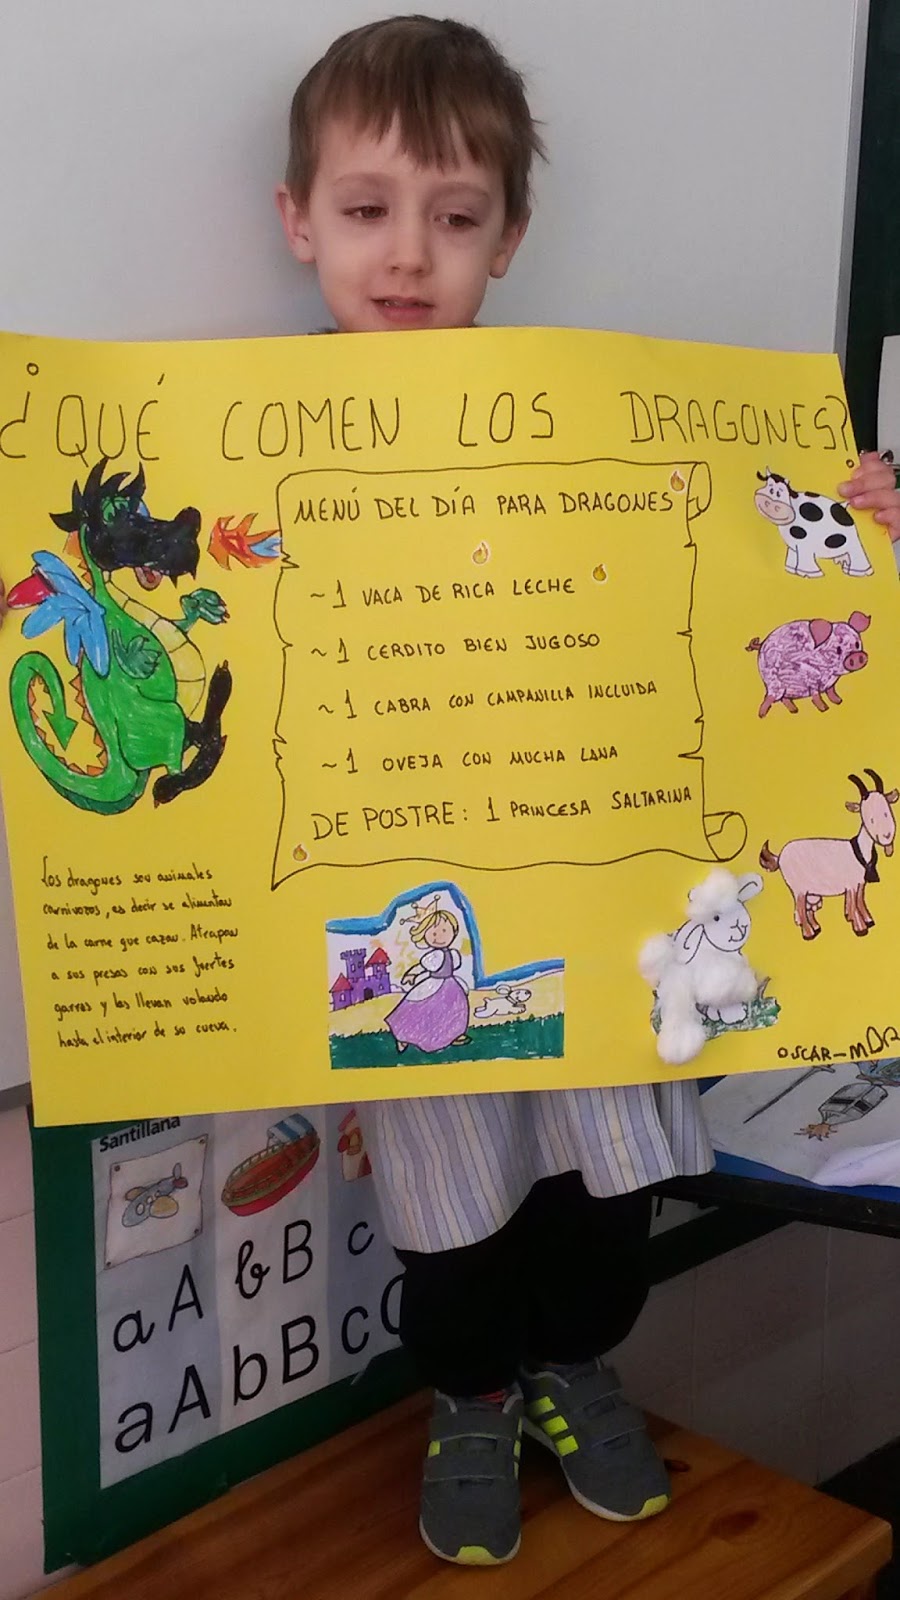 ¿QUÉ COMEN LOS DRAGONES?
MENÚ DEL DÍA PARA DRAGONES
~1 VACA DE RICA LECHE
~1 CERDITO BIEN JUGOSO
~1 CABRA CON CAMPANILLA INCLUIDA
~1 OVEJA CON MUCHA LANA
DE POSTRE: 1 PRINCESA SALTARINA
Los dragones son animales
carnivozos, es decir se alimentan
de la carne que cazan. Atrapan
a sus presas con sus fuertes
garras y las llevan volando
hasta el interior de so cueva.
OSCAR-
Santillana
a A b B c
a A b B c C